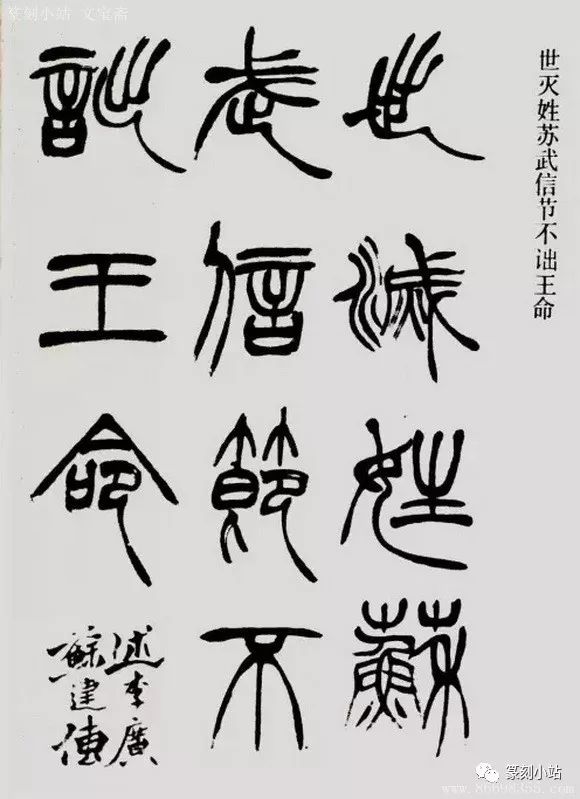 篆刻小站 文宝斋
世灭姓苏武信节不诎王命
世滅姓蘇
武信節不
詘王命
述李廣
蘇建傳
篆刻小站
www.86698355.com